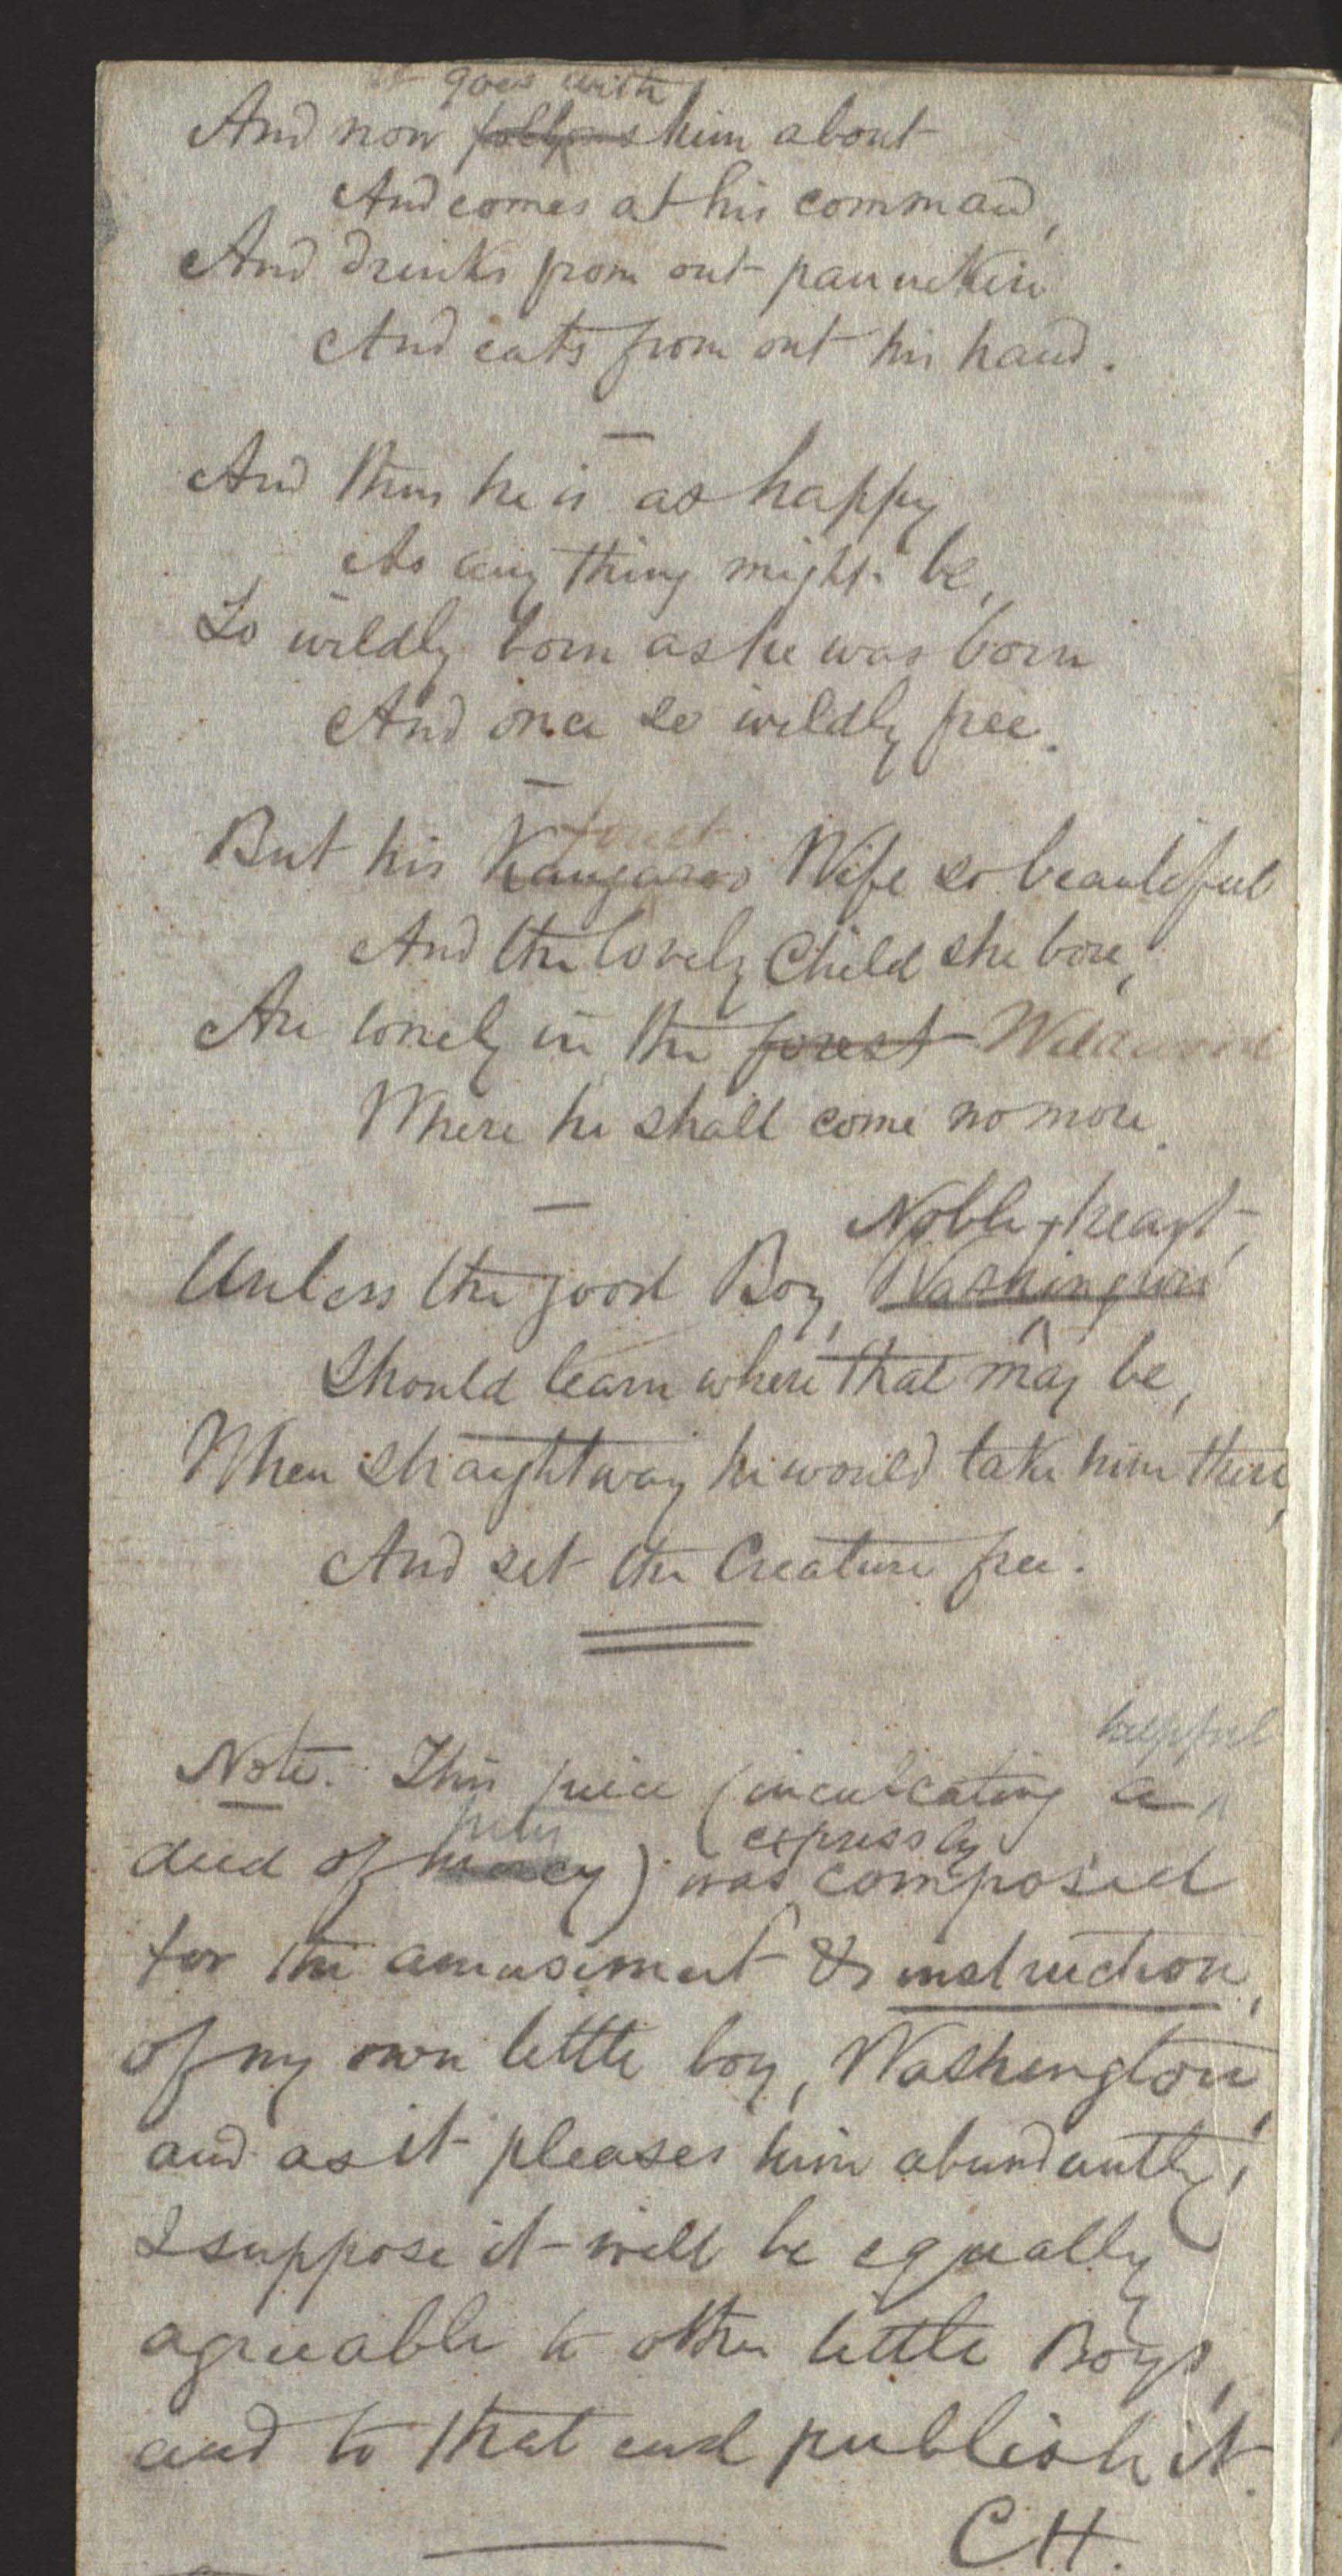 it goes with
And now follows him about
And comes at his command,
And drinks from out pannikin
And eats from out his hand.
And thus he is as happy
As any thing might be,
So wildly born as he was born
And once so wildly free.
forest
But his Kangaroo Wife so beautiful
And the lovely Child she bore,
Are lonely in the forest Wildwood
Where he shall come no more.
Noble heart,
Unless the good Boy, Washington
Should learn where that may be,
When straightway he would take him there,
And set the Creature free.
helpful
Note. This piece (inculcating a
pity expressly
deed of mercy) was composed
for the amusement & instruction,
of my own little boy, Washington,
and as it pleases him abundantly,
I suppose it will be equally
agreeable to other little Boys,
and to that end publish it.
C H.